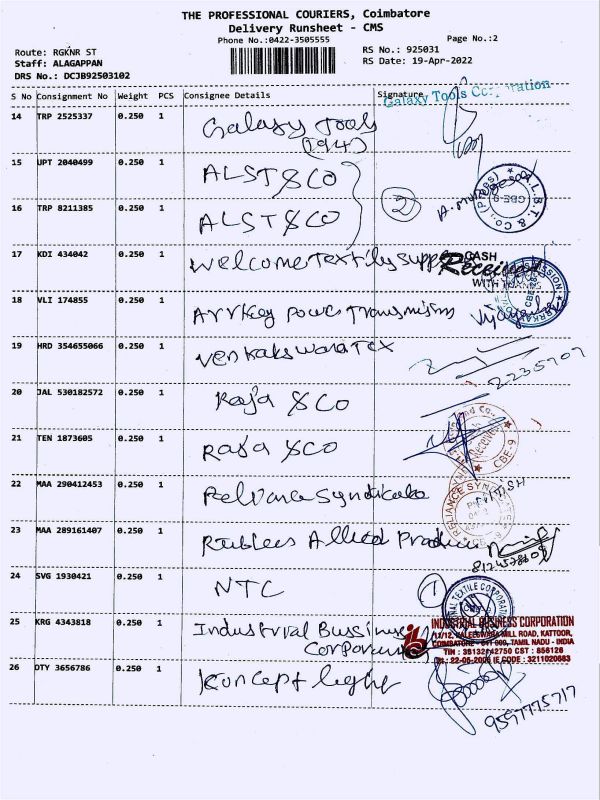 THE PROFESSIONAL COURIERS, Coimbatore
Delivery Runsheet - CMS
Phone No.:0422-3505555
Page No.:2
Route: RGKNR ST
RS No.: 925031
Staff: ALAGAPPAN
RS Date: 19-Apr-2022
DRS No.: DCJB92503102
S No Consignment No Weight PCS Consignee Details Signature
Galaxy Tools Corporation
14 TRP 2525337 0.250 1 Galaxy Tools
(194)
15 UPT 2040499 0.250 1 ALST & CO
16 TRP 8211385 0.250 1 ALST & CO
2
17 KDI 434042 0.250 1 Welcome Textily
CASH
Received
WITH THANKS
18 VLI 174855 0.250 1 Arrkey Power Transmism
19 HRD 354655066 0.250 1
2235707
20 JAL 530182572 0.250 1 Raja & CO
21 TEN 1873605 0.250 1 Raja & CO
CBE-9
22 MAA 290412453 0.250 1 Reliance Syndicate
NITISH
RELIANCE SYN
23 MAA 289161407 0.250 1 Rubbers Allied
24 SVG 1930421 0.250 1 NTC
1
25 KRG 4343818 0.250 1 Industrial Bussiness
Corporation
INDUSTRIAL BUSINESS CORPORATION
MILL ROAD, KATTOOR,
COIMBATORE - 641 009, TAMIL NADU - INDIA
IE CODE : 3211020683
26 DTY 3656786 0.250 1 Koncept light
9597775717